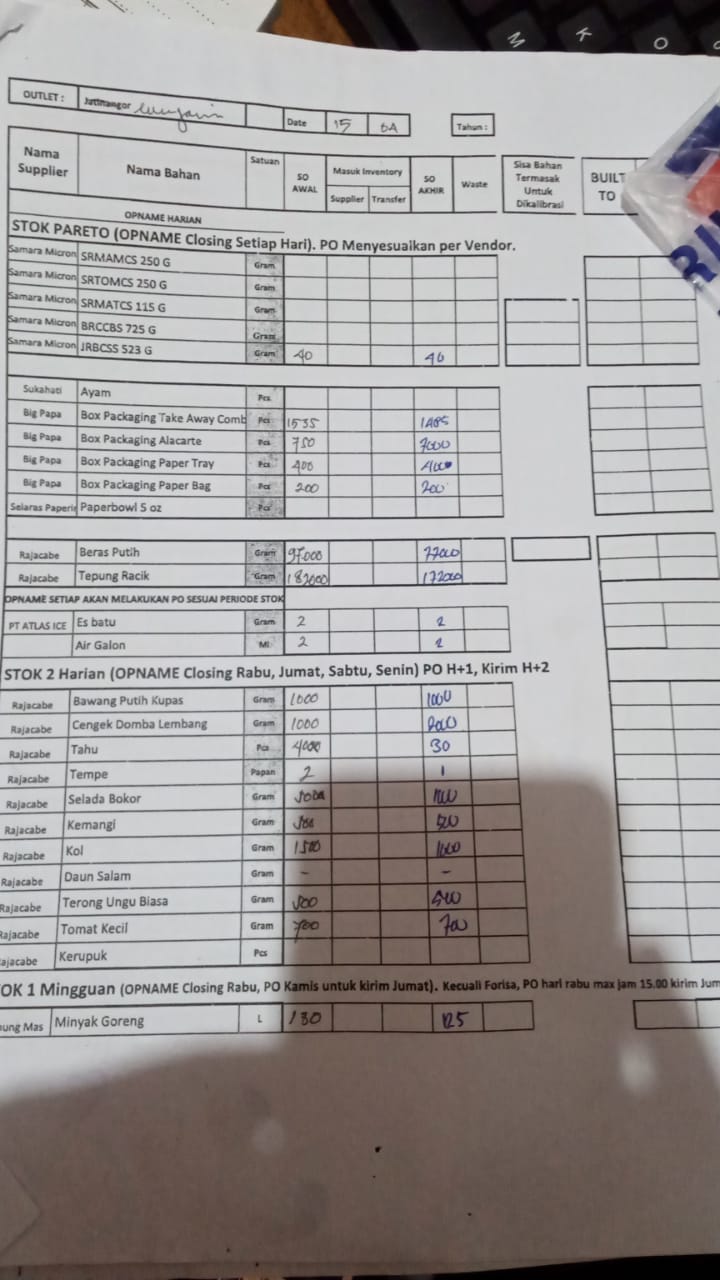 OUTLET : Jatinangor Date 15 Tahun :
Nama Supplier Nama Bahan Satuan SO AWAL Masuk Inventory Supplier Transfer SO AKHIR Waste Sisa Bahan Termasak Untuk Dikalibrasi BUILT TO
OPNAME HARIAN
STOK PARETO (OPNAME Closing Setiap Hari). PO Menyesuaikan per Vendor.
Samara Micron SRMAMCS 250 G Gram
Samara Micron SRTOMCS 250 G Gram
Samara Micron SRMATCS 115 G Gram
Samara Micron BRCCBS 725 G Gram
Samara Micron JRBCSS 523 G Gram 40 40
Sukahati Ayam Pcs
Big Papa Box Packaging Take Away Comb Pcs 1535 1485
Big Papa Box Packaging Alacarte Pcs 750 7000
Big Papa Box Packaging Paper Tray Pcs 400
Big Papa Box Packaging Paper Bag Pcs 200 200
Selaras Paperin Paperbowl 5 oz Pcs
Rajacabe Beras Putih Gram 97.000 77000
Rajacabe Tepung Racik Gram 182000 172000
OPNAME SETIAP AKAN MELAKUKAN PO SESUAI PERIODE STOK
PT ATLAS ICE Es batu Gram 2 2
Air Galon Ml 2 2
STOK 2 Harian (OPNAME Closing Rabu, Jumat, Sabtu, Senin) PO H+1, Kirim H+2
Rajacabe Bawang Putih Kupas Gram 1000 1000
Rajacabe Cengek Domba Lembang Gram 1000
Rajacabe Tahu Pcs 4000 30
Rajacabe Tempe Papan 2 1
Rajacabe Selada Bokor Gram
Rajacabe Kemangi Gram 500
Rajacabe Kol Gram 1500 1000
Rajacabe Daun Salam Gram - -
Rajacabe Terong Ungu Biasa Gram 500 500
Rajacabe Tomat Kecil Gram 700 700
ajacabe Kerupuk Pcs
OK 1 Mingguan (OPNAME Closing Rabu, PO Kamis untuk kirim Jumat). Kecuali Forisa, PO hari rabu max jam 15.00 kirim Jum
ung Mas Minyak Goreng L 130 125